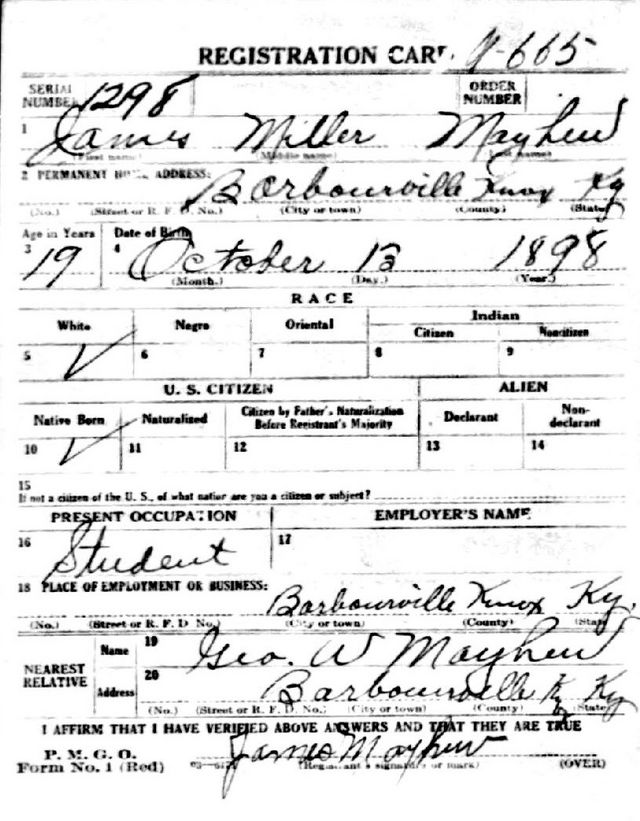 REGISTRATION CARD
SERIAL NUMBER 1298 ORDER NUMBER
1 James Miller Mayhew
(First name) (Middle name) (Last name)
2 PERMANENT HOME ADDRESS: Barbourville Knox Ky
(No.) (Street or R. F. D. No.) (City or town) (County) (State)
Age in Years Date of Birth
3 19 4 October 13 1898
(Month.) (Day.) (Year.)
RACE
White Negro Oriental Indian
Citizen Noncitizen
5 ✓ 6 7 8 9
U. S. CITIZEN ALIEN
Native Born Naturalized Citizen by Father's Naturalization Before Registrant's Majority Declarant Non-declarant
10 ✓ 11 12 13 14
15
If not a citizen of the U. S., of what nation are you a citizen or subject?
PRESENT OCCUPATION EMPLOYER'S NAME
16 Student 17
18 PLACE OF EMPLOYMENT OR BUSINESS:
Barbourville Knox Ky.
(No.) (Street or R. F. D. No.) (City or town) (County) (State)
NEAREST RELATIVE Name 19 Geo. W Mayhew
Address 20 Barbourville Ky
(No.) (Street or R. F. D. No.) (City or town) (County) (State)
I AFFIRM THAT I HAVE VERIFIED ABOVE ANSWERS AND THAT THEY ARE TRUE
P. M. G. O.
Form No. 1 (Red) James Mayhew
(Registrant's signature or mark) (OVER)